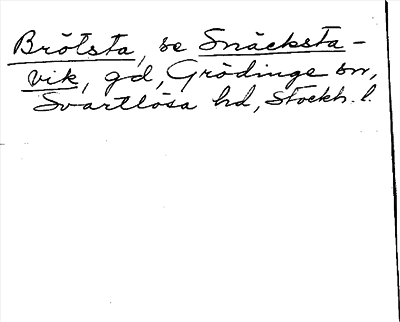 Brötsta, se Snäcksta-
vik, gd, Grödinge sn,
Svartlösa hd, Stockh. l.